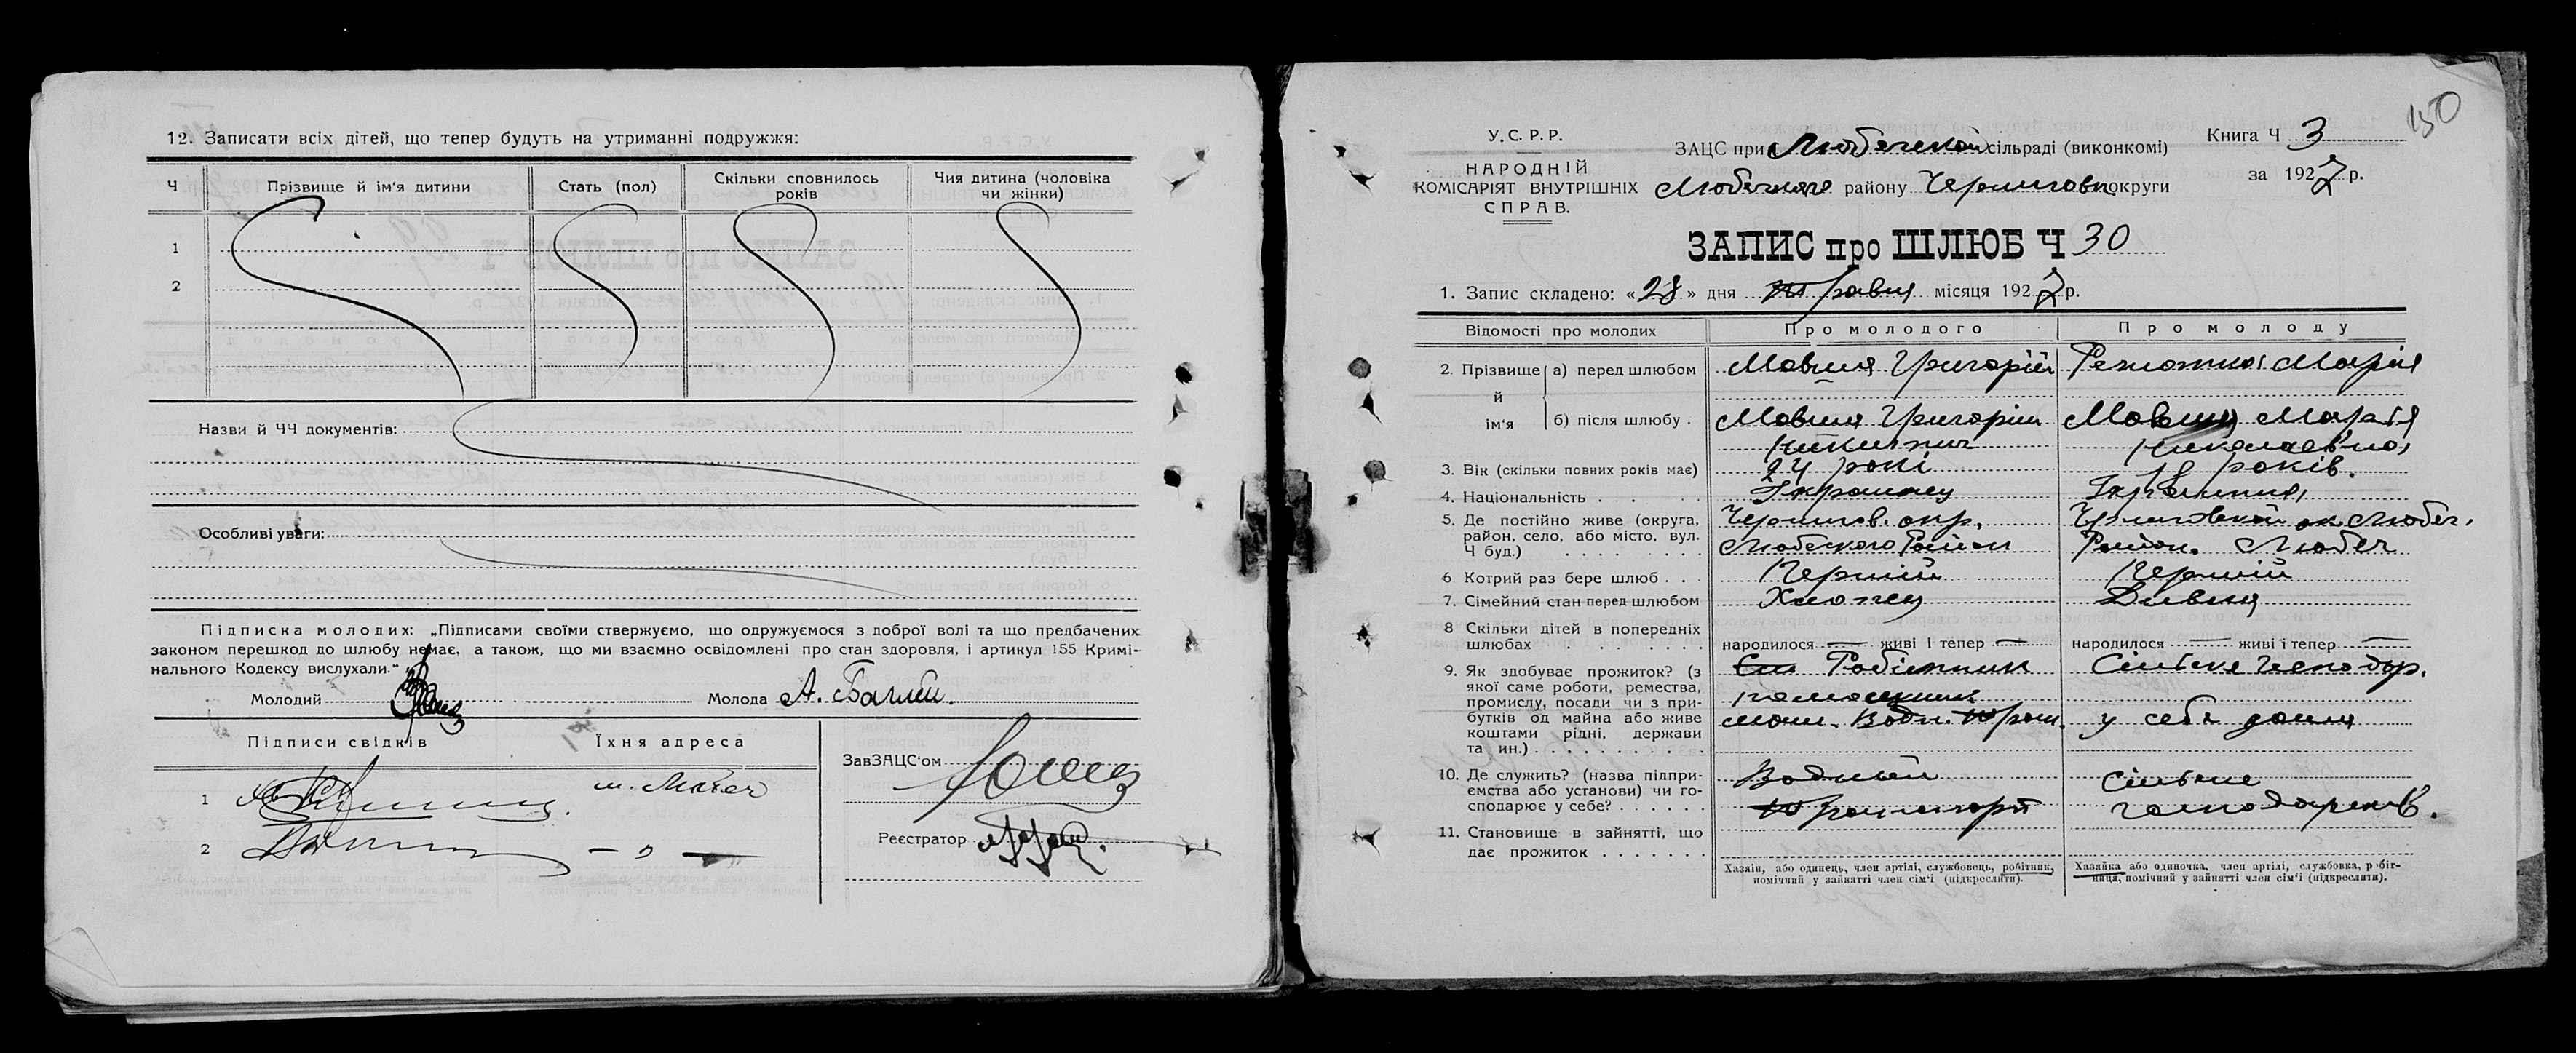 12. Записати всіх дітей, що тепер будуть на утриманні подружжя:
Ч Прізвище й ім'я дитини Стать (пол) Скільки сповнилось років Чия дитина (чоловіка чи жінки)
1
2
Назви й ЧЧ документів:
Особливі уваги:
Підписка молодих: „Підписами своїми стверджуємо, що одружуємося з доброї волі та що предбачених
законом перешкод до шлюбу немає, а також, що ми взаємно освідомлені про стан здоровля, і артикул 155 Кримі-
нального Кодексу вислухали."
Молодий Молода А. Баглей.
Підписи свідків Їхня адреса
ЗавЗАЦС'ом
1 м. Любеч
2 — „ —
Реєстратор
150
У.С.Р.Р.
НАРОДНІЙ
КОМІСАРІЯТ ВНУТРІШНІХ
СПРАВ.
ЗАЦС при Любечской сільраді (виконкомі)
Любечского району Черниговск. округи
Книга Ч 3
за 1927 р.
ЗАПИС про ШЛЮБ Ч 30
1. Запис складено: «28» дня Травня місяця 1927 р.
Відомості про молодих Про молодого Про молоду
2. Прізвище й ім'я а) перед шлюбом Мовша Григорій Марія
б) після шлюбу Мовша Григорій Никитич Мовша Марія Николаевна
3. Вік (скільки повних років має) 24 рокі 18 років.
4. Національність Українец Українка
5. Де постійно живе (округа, район, село, або місто, вул. Ч буд.) Чернигов. окр. Любеского Район Черниговской ок Любеч. Район. Любеч
6 Котрий раз бере шлюб Перший Перший
7. Сімейний стан перед шлюбом Хлопец Дивка
8 Скільки дітей в попередніх шлюбах народилося — живі і тепер — народилося — живі і тепер —
9. Як здобуває прожиток? (з якої саме роботи, ремества, промислу, посади чи з прибутків од майна або живе коштами рідні, держави та ин.) Робітник помощник маш. Водн. Тран. Сільске господар. у себя дома
10. Де служить? (назва підприємства або установи) чи господарює у себе? Водный Транспорт Сільске господарство.
11. Становище в зайнятті, що дає прожиток
Хазяїн, або одинець, член артілі, службовець, робітник, помічний у зайнятті член сім'ї (підкреслити).
Хазяйка або одиночка, член артілі, службовка, робітниця, помічний у зайнятті член сім'ї (підкреслити).